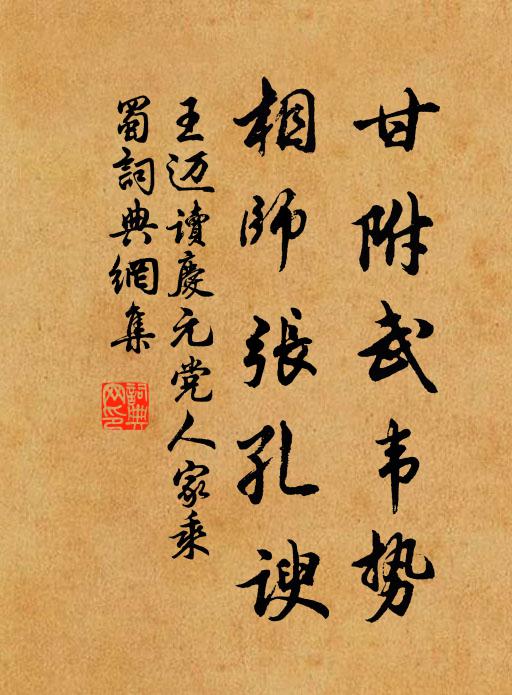 甘附武韦势
相师張孔谀
王迈讀慶元党人家乘
蜀詞典網集
詞典网印